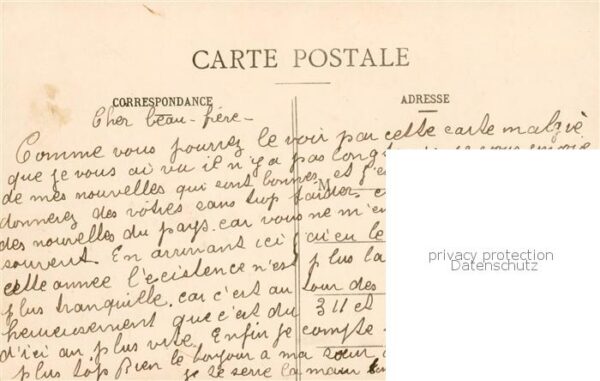 CARTE POSTALE
CORRESPONDANCE
ADRESSE
Cher beau-frère-
Comme vous pourrez le voir par cette carte malgré
que je vous ai vu il n'y a pas longt je vous envoie
de mes nouvelles qui sont bonnes et j'e
M
donnerez des vôtres sans trop tarder
des nouvelles du pays car vous ne m'en
souvent. En arrivant ici j'ai eu le
cette année l'écistence n'est plus la
plus tranquille, car c'est au tour des
heureusement que c'est du 311 et
d'ici au plus vite. Enfin je compte
plus tôp Bien le bonjour a ma sœur
je te serre la main
privacy protection
Datenschutz